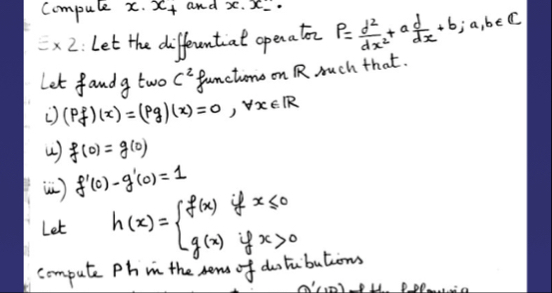 Compute x. x₊ and x. x₋.
Ex 2: Let the differential operator P = d²/dx² + a d/dx + b; a, b ∈ ℂ
Let f and g two C² functions on ℝ such that.
i) (Pf)(x) = (Pg)(x) = 0, ∀x ∈ ℝ
ii) f(0) = g(0)
iii) f'(0) - g'(0) = 1
Let h(x) = { f(x) if x ≤ 0
g(x) if x > 0
Compute Ph in the sens of distributions
of the following